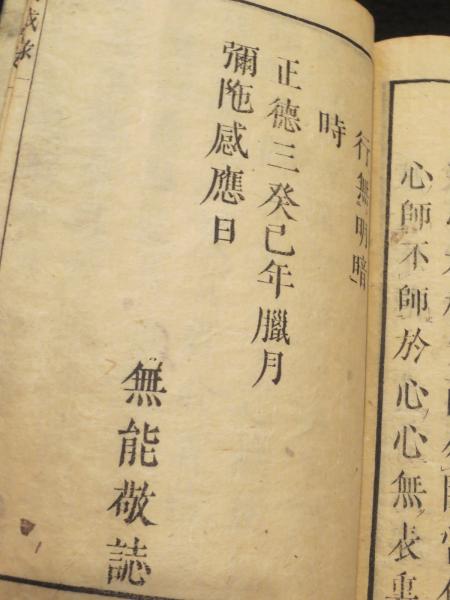 心師不師於心心無表裏
行無明暗
時
正德三癸巳年臘月
彌陁感應日
無能敬誌